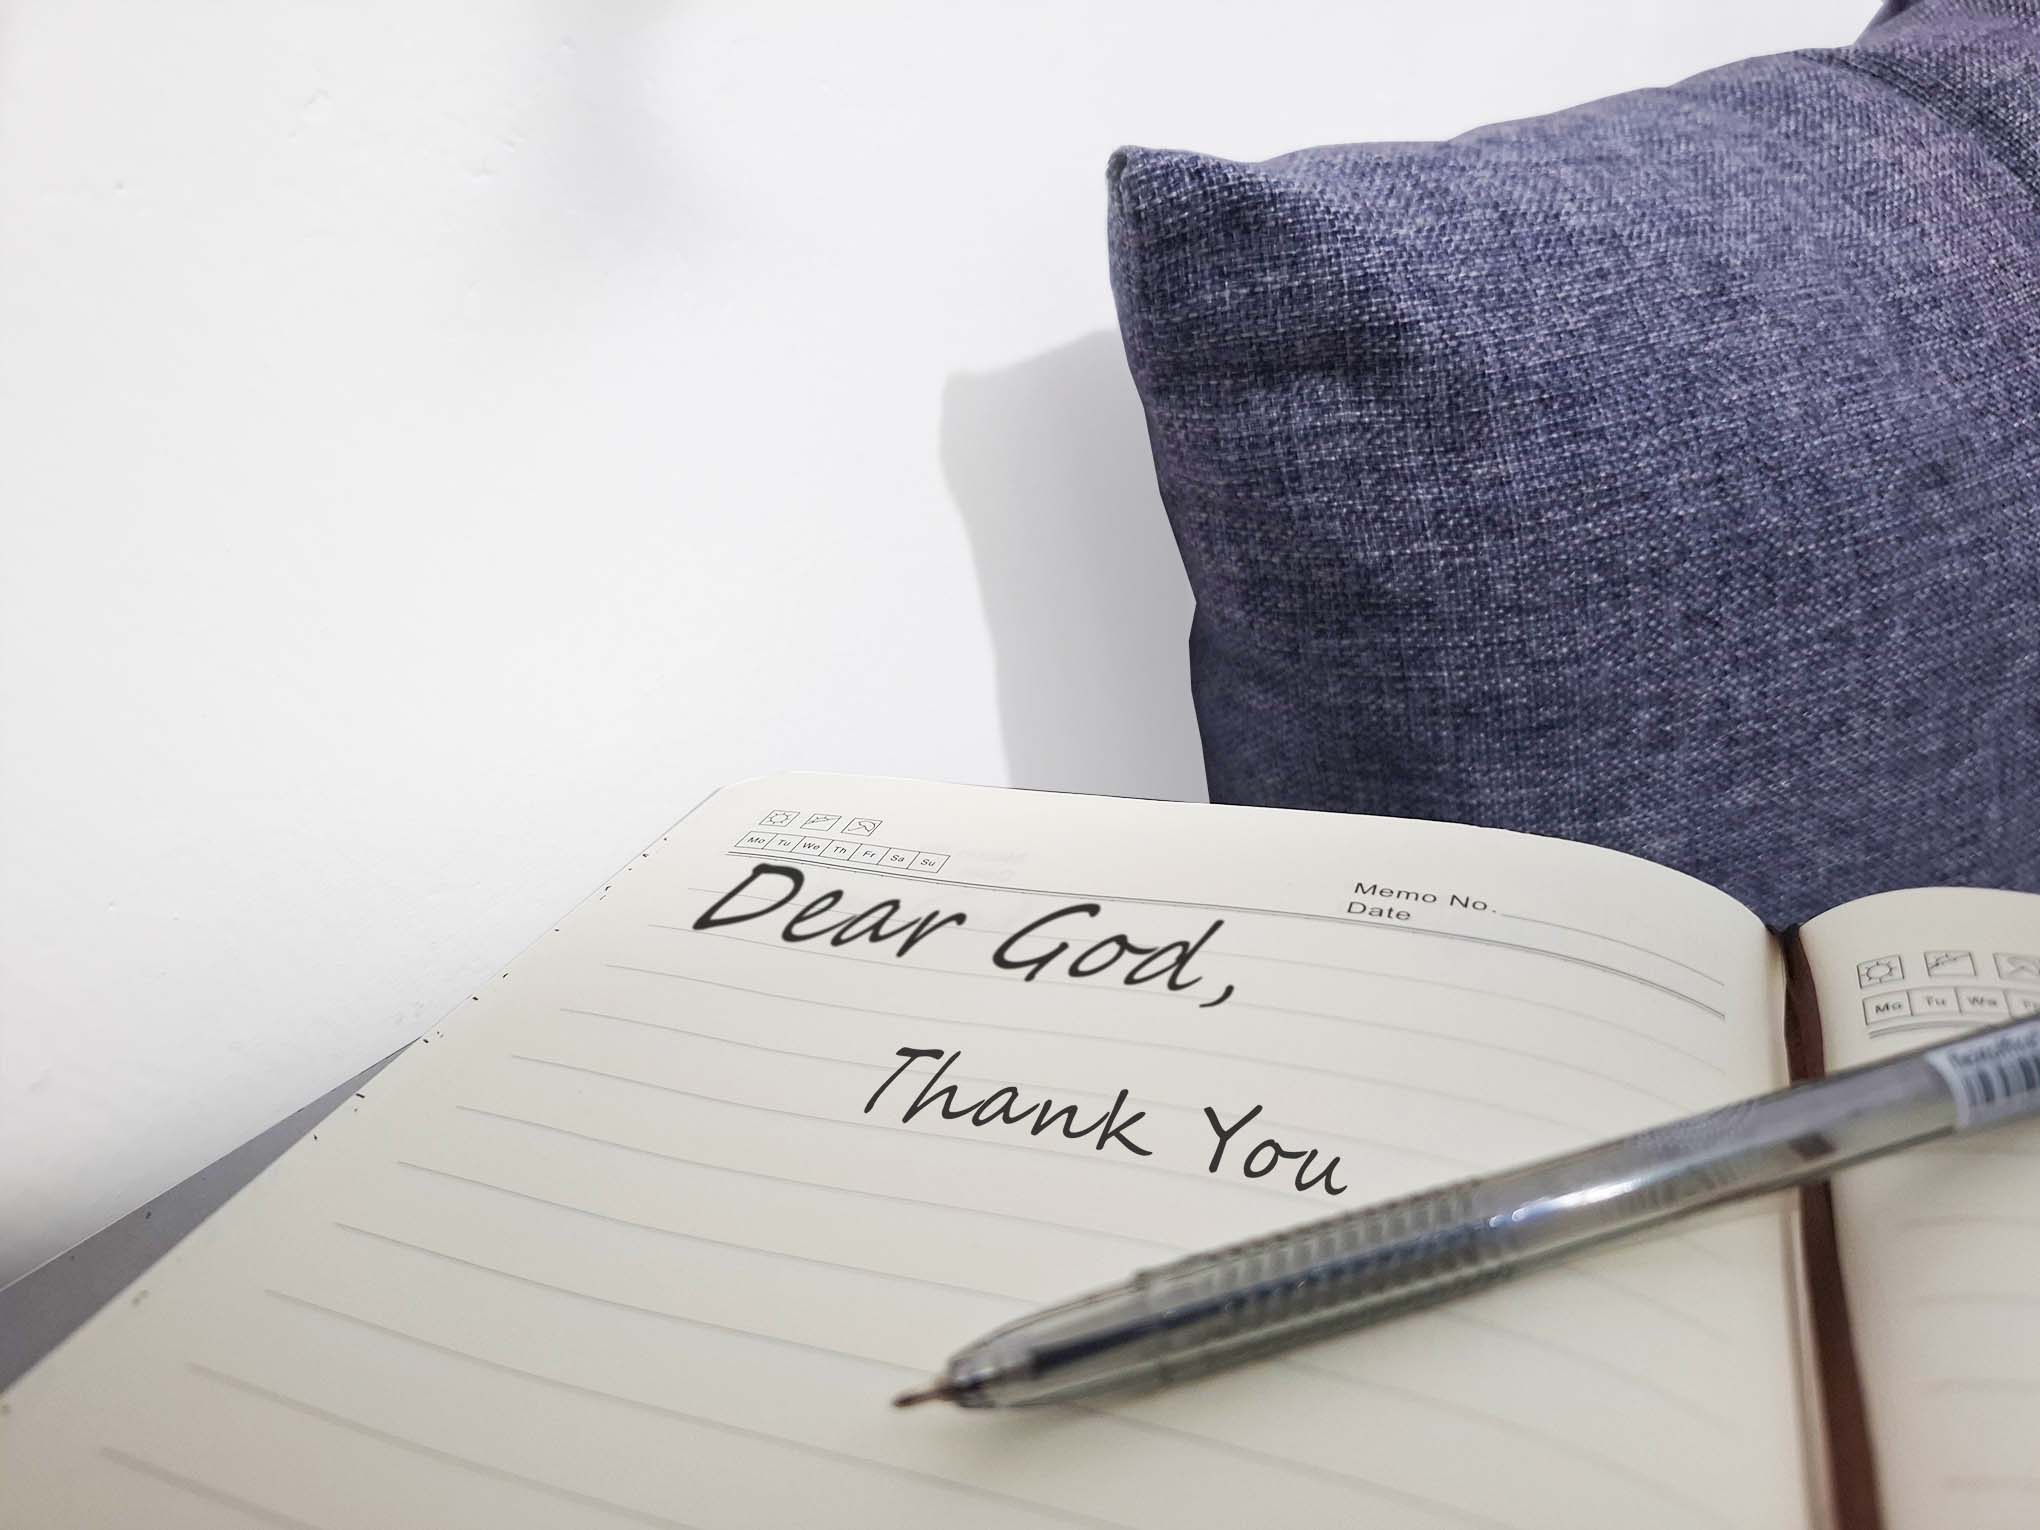 Mo Tu We Th Fr Sa Su
Memo No.
Date
Dear God,
Thank You
Mo Tu We